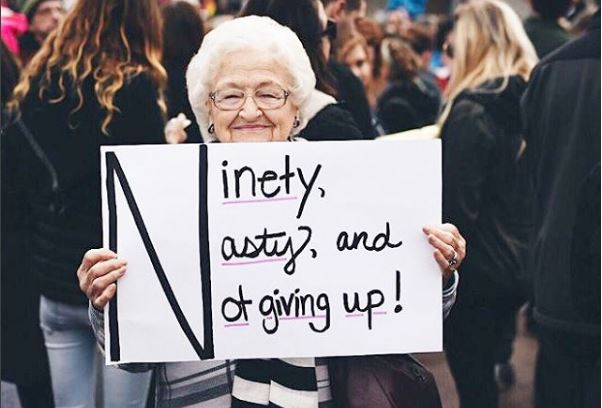 Ninety,
Nasty, and
Not giving up!